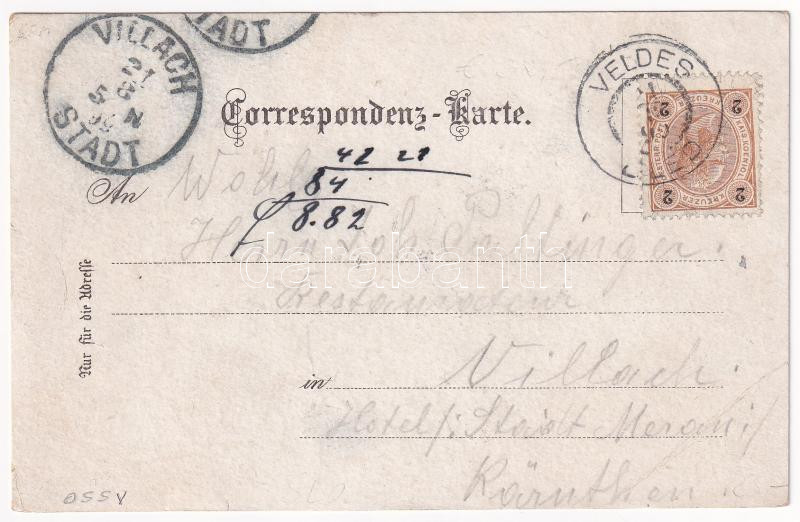 STADT
VILLACH
21
5 N
STADT
VELDES
2 2
KREUZER
2 2
Correspondenz-Karte.
42 21
84
8.82
An Wohl
Herrn Joh.
darabanth
Restaurateur
Nur für die Adresse
in Villach.
Hotel /: Stadt Meran :/
Kärnthen